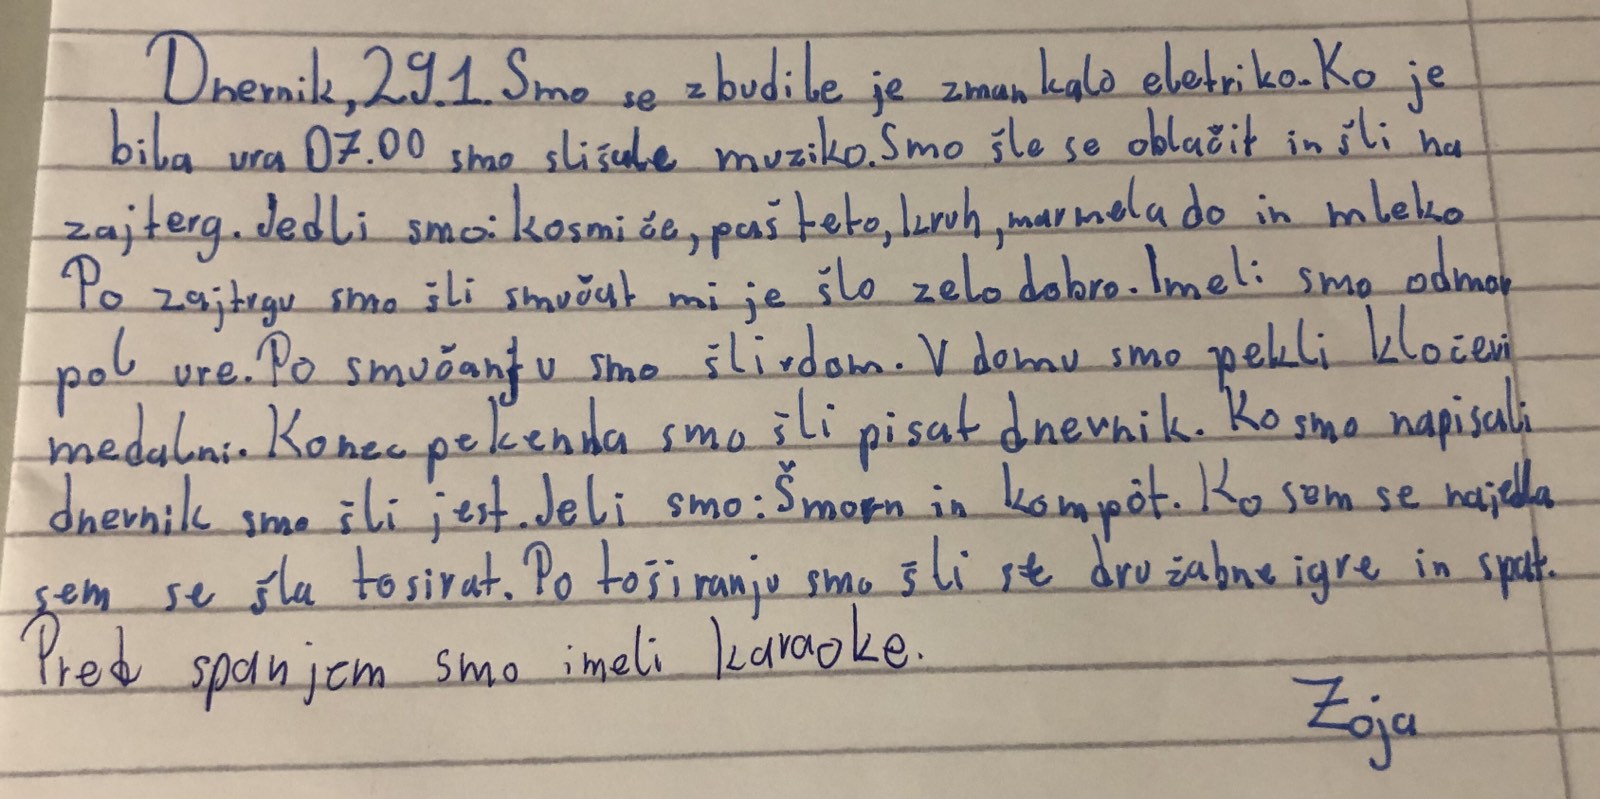 Dnevnik, 29.1. Smo se zbudile je zmankalo eletriko. Ko je
bila ura 07.00 smo slišale muziko. Smo šle se oblačit in šli na
zajterg. Jedli smo: kosmiče, pašteto, kruh, marmelado in mleko
Po zajtrgu smo šli smučat mi je šlo zelo dobro. Imeli smo odmor
pol ure. Po smučanju smo šli vdom. V domu smo pekli kločevi
medalni. Konec pekenka smo šli pisat dnevnik. Ko smo napisali
dnevnik smo šli jest. Jeli smo: Šmorn in kompót. Ko sem se najedla
sem se šla tosirat. Po toširanju smo šli se družabne igre in spat.
Pred spanjem smo imeli karaoke.
Zoja